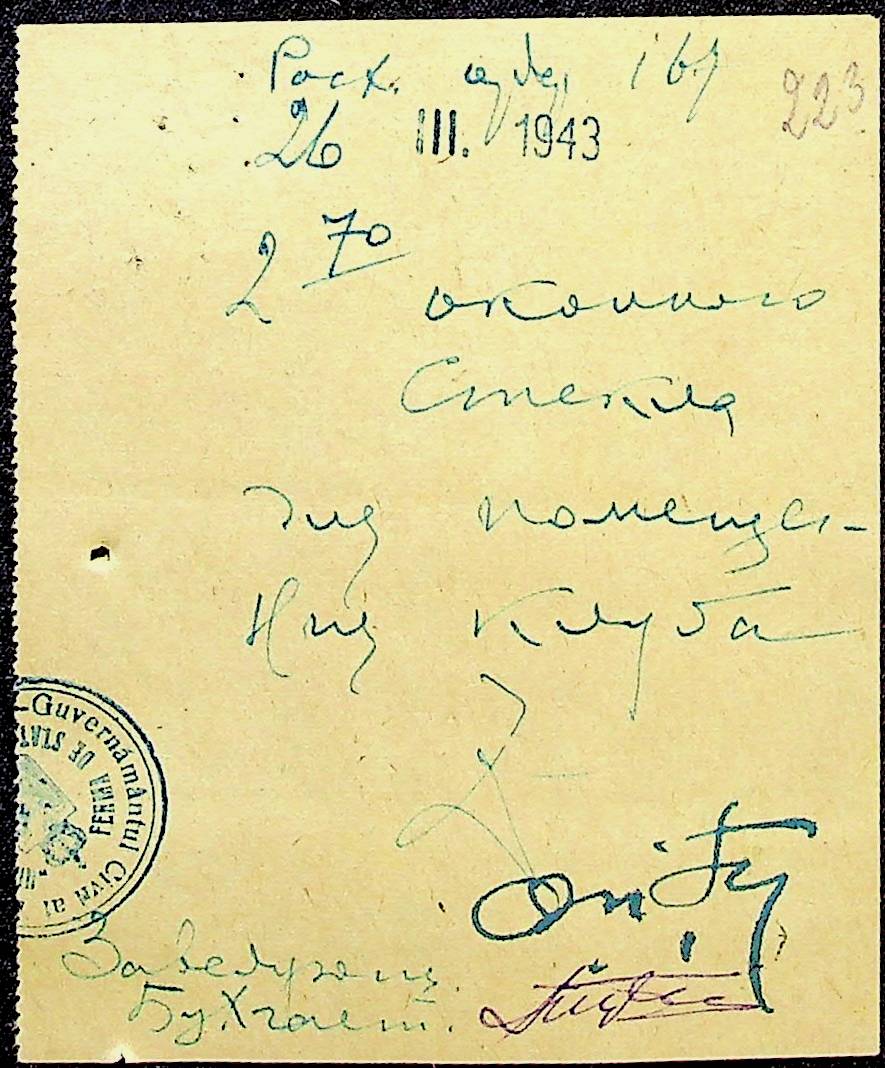 Расх. 167
223
26 III. 1943
2 70 оконного
Стекла
Для помеще-
Ния Клуба
Guvernământul Civil al
FERMA DE STAT
Заведующ.
Бухгалт.